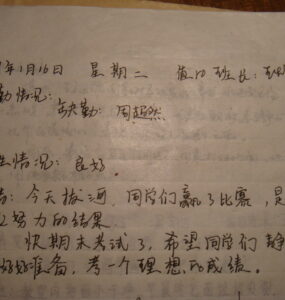 年1月16日 星期二 值日班长:
勤情况:
缺勤: 周超然
生情况: 良好.
结: 今天拔河, 同学们赢了比赛, 是
努力的结果.
快期末考试了, 希望同学们静
好好准备, 考一个理想的成绩.